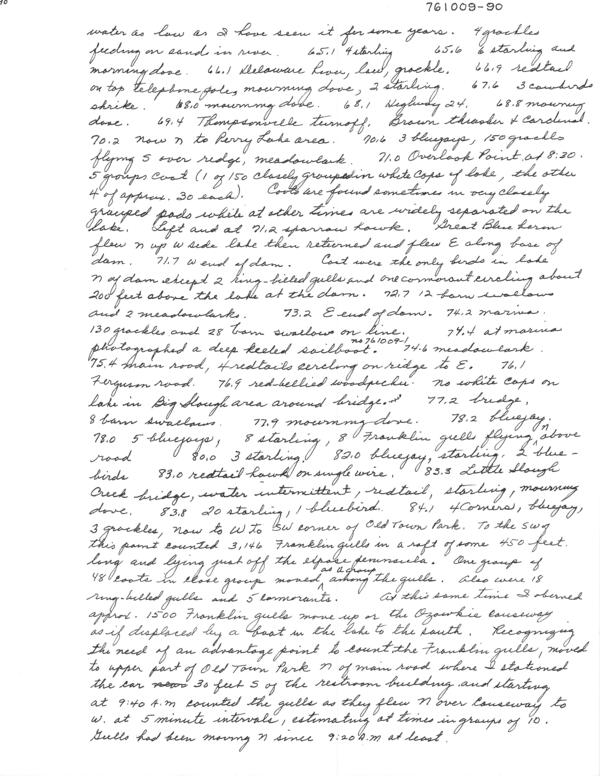 761009-90
water as low as I have seen it for some years. 4 grackles
feeding on sand in river. 65.1 4 starling 65.6 6 starling and
morning dove. 66.1 Delaware River, low, grackle. 66.9 redtail
on top telephone pole, mourning dove, 2 starling. 67.6 3 cowbirds
shrike. 68.0 mourning dove. 68.1 Highway 24. 68.8 mourning
dove. 69.4 Thompsonville turnoff. Brown thrasher & Cardinal.
70.2 now N to Perry Lake area. 70.6 3 bluejays, 150 grackles
flying S over ridge, meadowlark. 71.0 Overlook Point at 8:30.
5 groups Coot (1 of 150 closely grouped in white caps of lake, the other
4 of approx. 30 each). Coots are found sometimes in very closely
grouped pods while at other times are widely separated on the
lake. Left and at 71.2 sparrow hawk. Great Blue heron
flew N up W side lake then returned and flew E along base of
dam. 71.7 W end of dam. Coot were the only birds in lake
N of dam except 2 ring-billed gulls and one cormorant circling about
200 feet above the lake at the dam. 72.7 12 barn swallows
and 2 meadowlarks. 73.2 E end of dam. 74.2 marina.
130 grackles and 28 barn swallows on line. 74.4 at marina
photographed a deep keeled sailboat. no 761009-1 74.6 meadowlark.
75.4 main road, 4 redtails circling on ridge to E. 76.1
Ferguson road. 76.9 red-bellied woodpecker. no white caps on
lake in Big Slough area around bridge. 77.2 bridge,
8 barn swallows. 77.9 mourning dove. 78.2 bluejay.
78.0 5 bluejays, 8 starling, 8 Franklin gulls flying above
road 80.0 3 starling. 82.0 bluejay, starling, 2 blue-
birds 83.0 redtail hawk on single wire. 83.3 Little Slough
Creek bridge, water intermittent, redtail, starling, mourning
dove. 83.8 20 starling, 1 bluebird. 84.1 4 Corners, bluejay,
3 grackles, now to W to SW corner of Old Town Park. To the SW of
this point counted 3,146 Franklin gulls in a raft of some 450 feet
long and lying just off the peninsula. One group of
48 coots in close group moved as a group among the gulls. Also were 18
ring-billed gulls and 5 cormorants. At this same time I oberved
approx. 1500 Franklin gulls move up or the Ozawkie causeway
as if displaced by a boat in the lake to the south. Recognizing
the need of an advantage point to count the Franklin gulls, moved
to upper part of Old Town Park N of main road where I stationed
the car 30 feet S of the restroom building and starting
at 9:40 A.M counted the gulls as they flew N over causeway to
W. at 5 minute intervals, estimating at times in groups of 10.
Gulls had been moving N since 9:20 A.M at least.